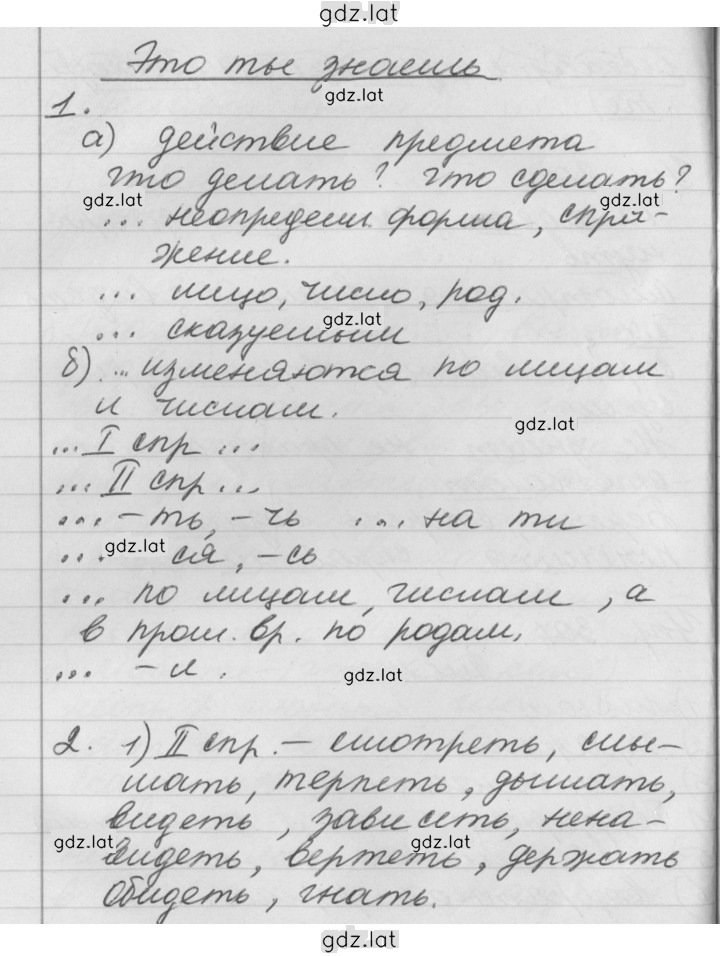 gdz.lat
Это ты знаешь
gdz.lat
1.
а) действие предмета
что делать? что сделать?
gdz.lat gdz.lat
... неопредел. форма, спря-
жение.
... лицо, число, род.
gdz.lat
... сказуемыми
б) ... изменяются по лицам
и числам.
gdz.lat
... I спр ...
... II спр ...
... -ть, -чь ... на ти
gdz.lat
... ся, -сь
... по лицам, числам, а
в прош. вр. по родам.
... -л.
gdz.lat
2. 1) II спр. - смотреть, слы-
шать, терпеть, дышать,
видеть, зависеть, нена-
gdz.lat gdz.lat
видеть, вертеть, держать
обидеть, гнать.
gdz.lat